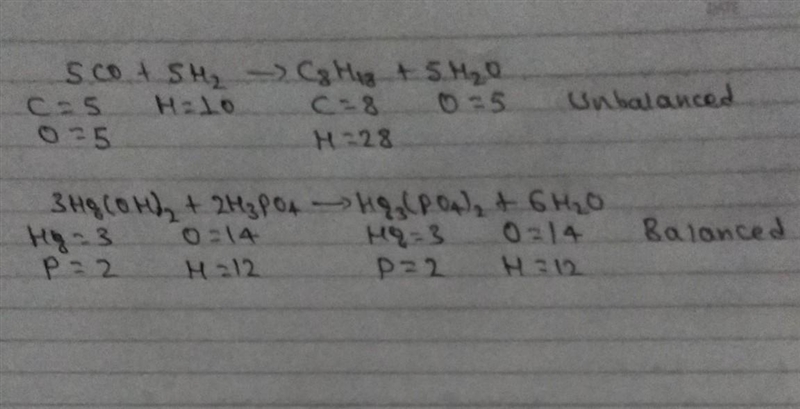 DATE
5CO + 5H₂ → C₈H₁₈ + 5H₂O
C=5 H=10 C=8 O=5 Unbalanced
O=5 H=28
3Hg(OH)₂ + 2H₃PO₄ → Hg₃(PO₄)₂ + 6H₂O
Hg=3 O=14 Hg=3 O=14 Balanced
P=2 H=12 P=2 H=12